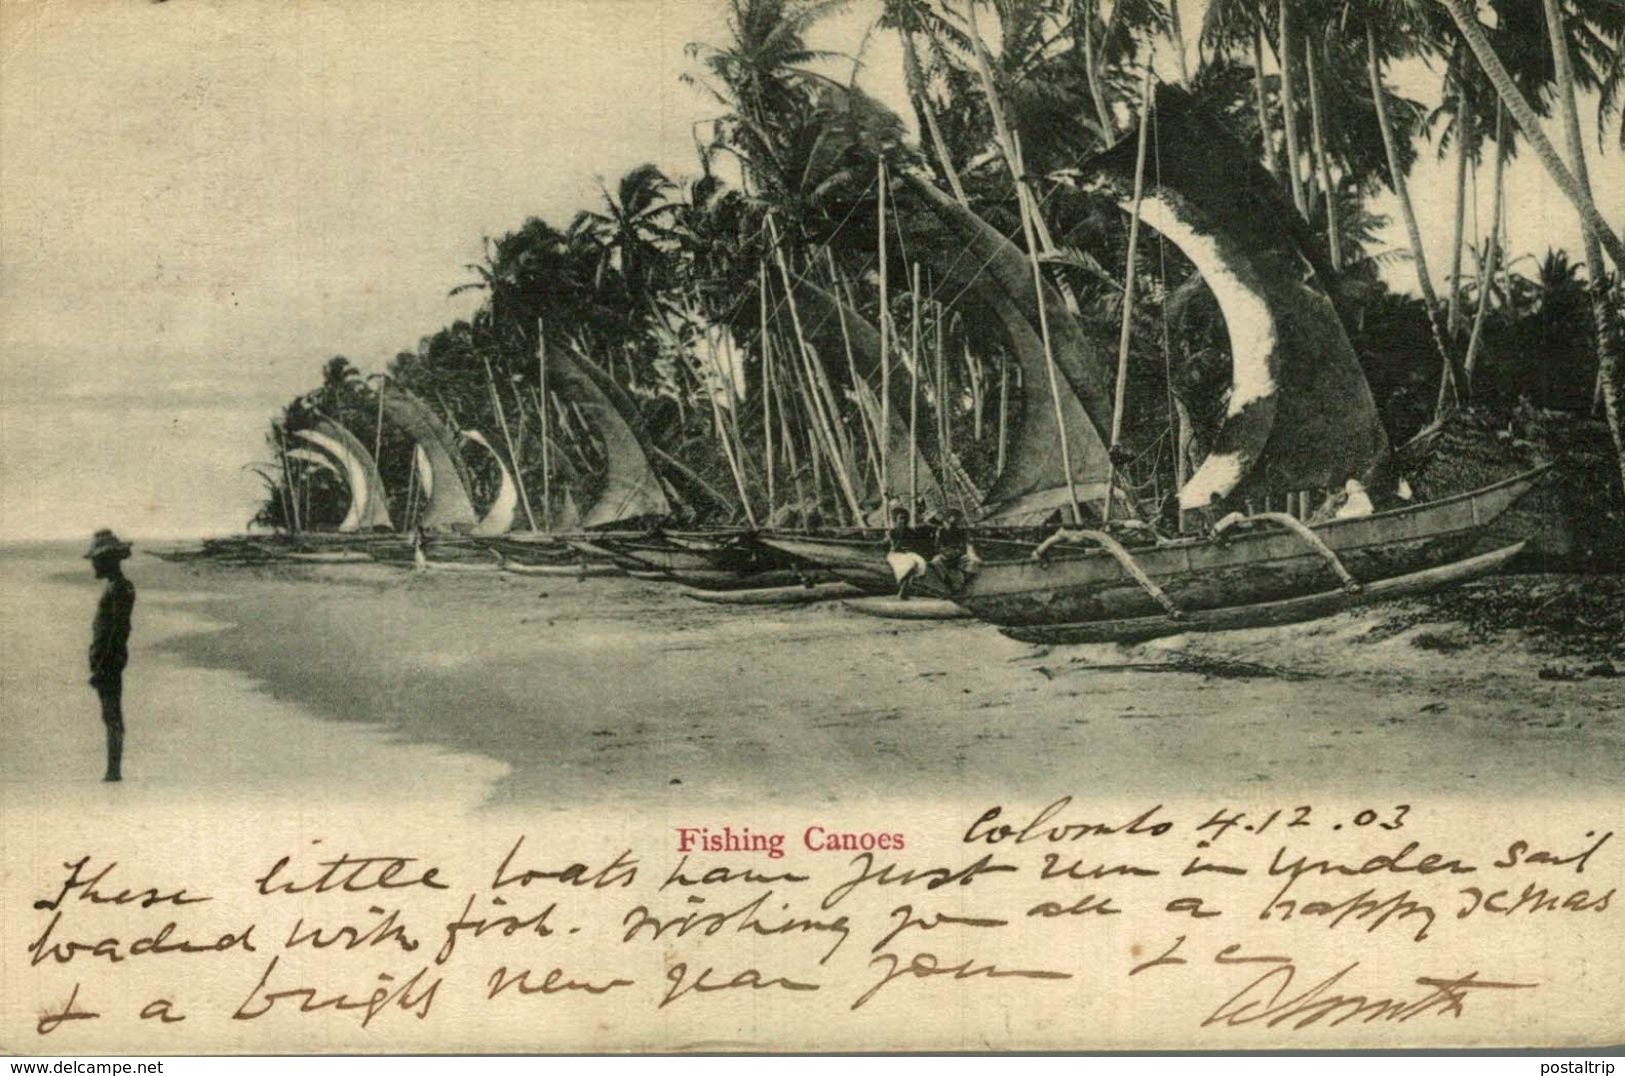 Fishing Canoes
Colombo 4.12.03
These little boats have just run in under sail
loaded with fish. Wishing you all a happy Xmas
& a bright new year your &c
Smith
www.delcampe.net
postaltrip